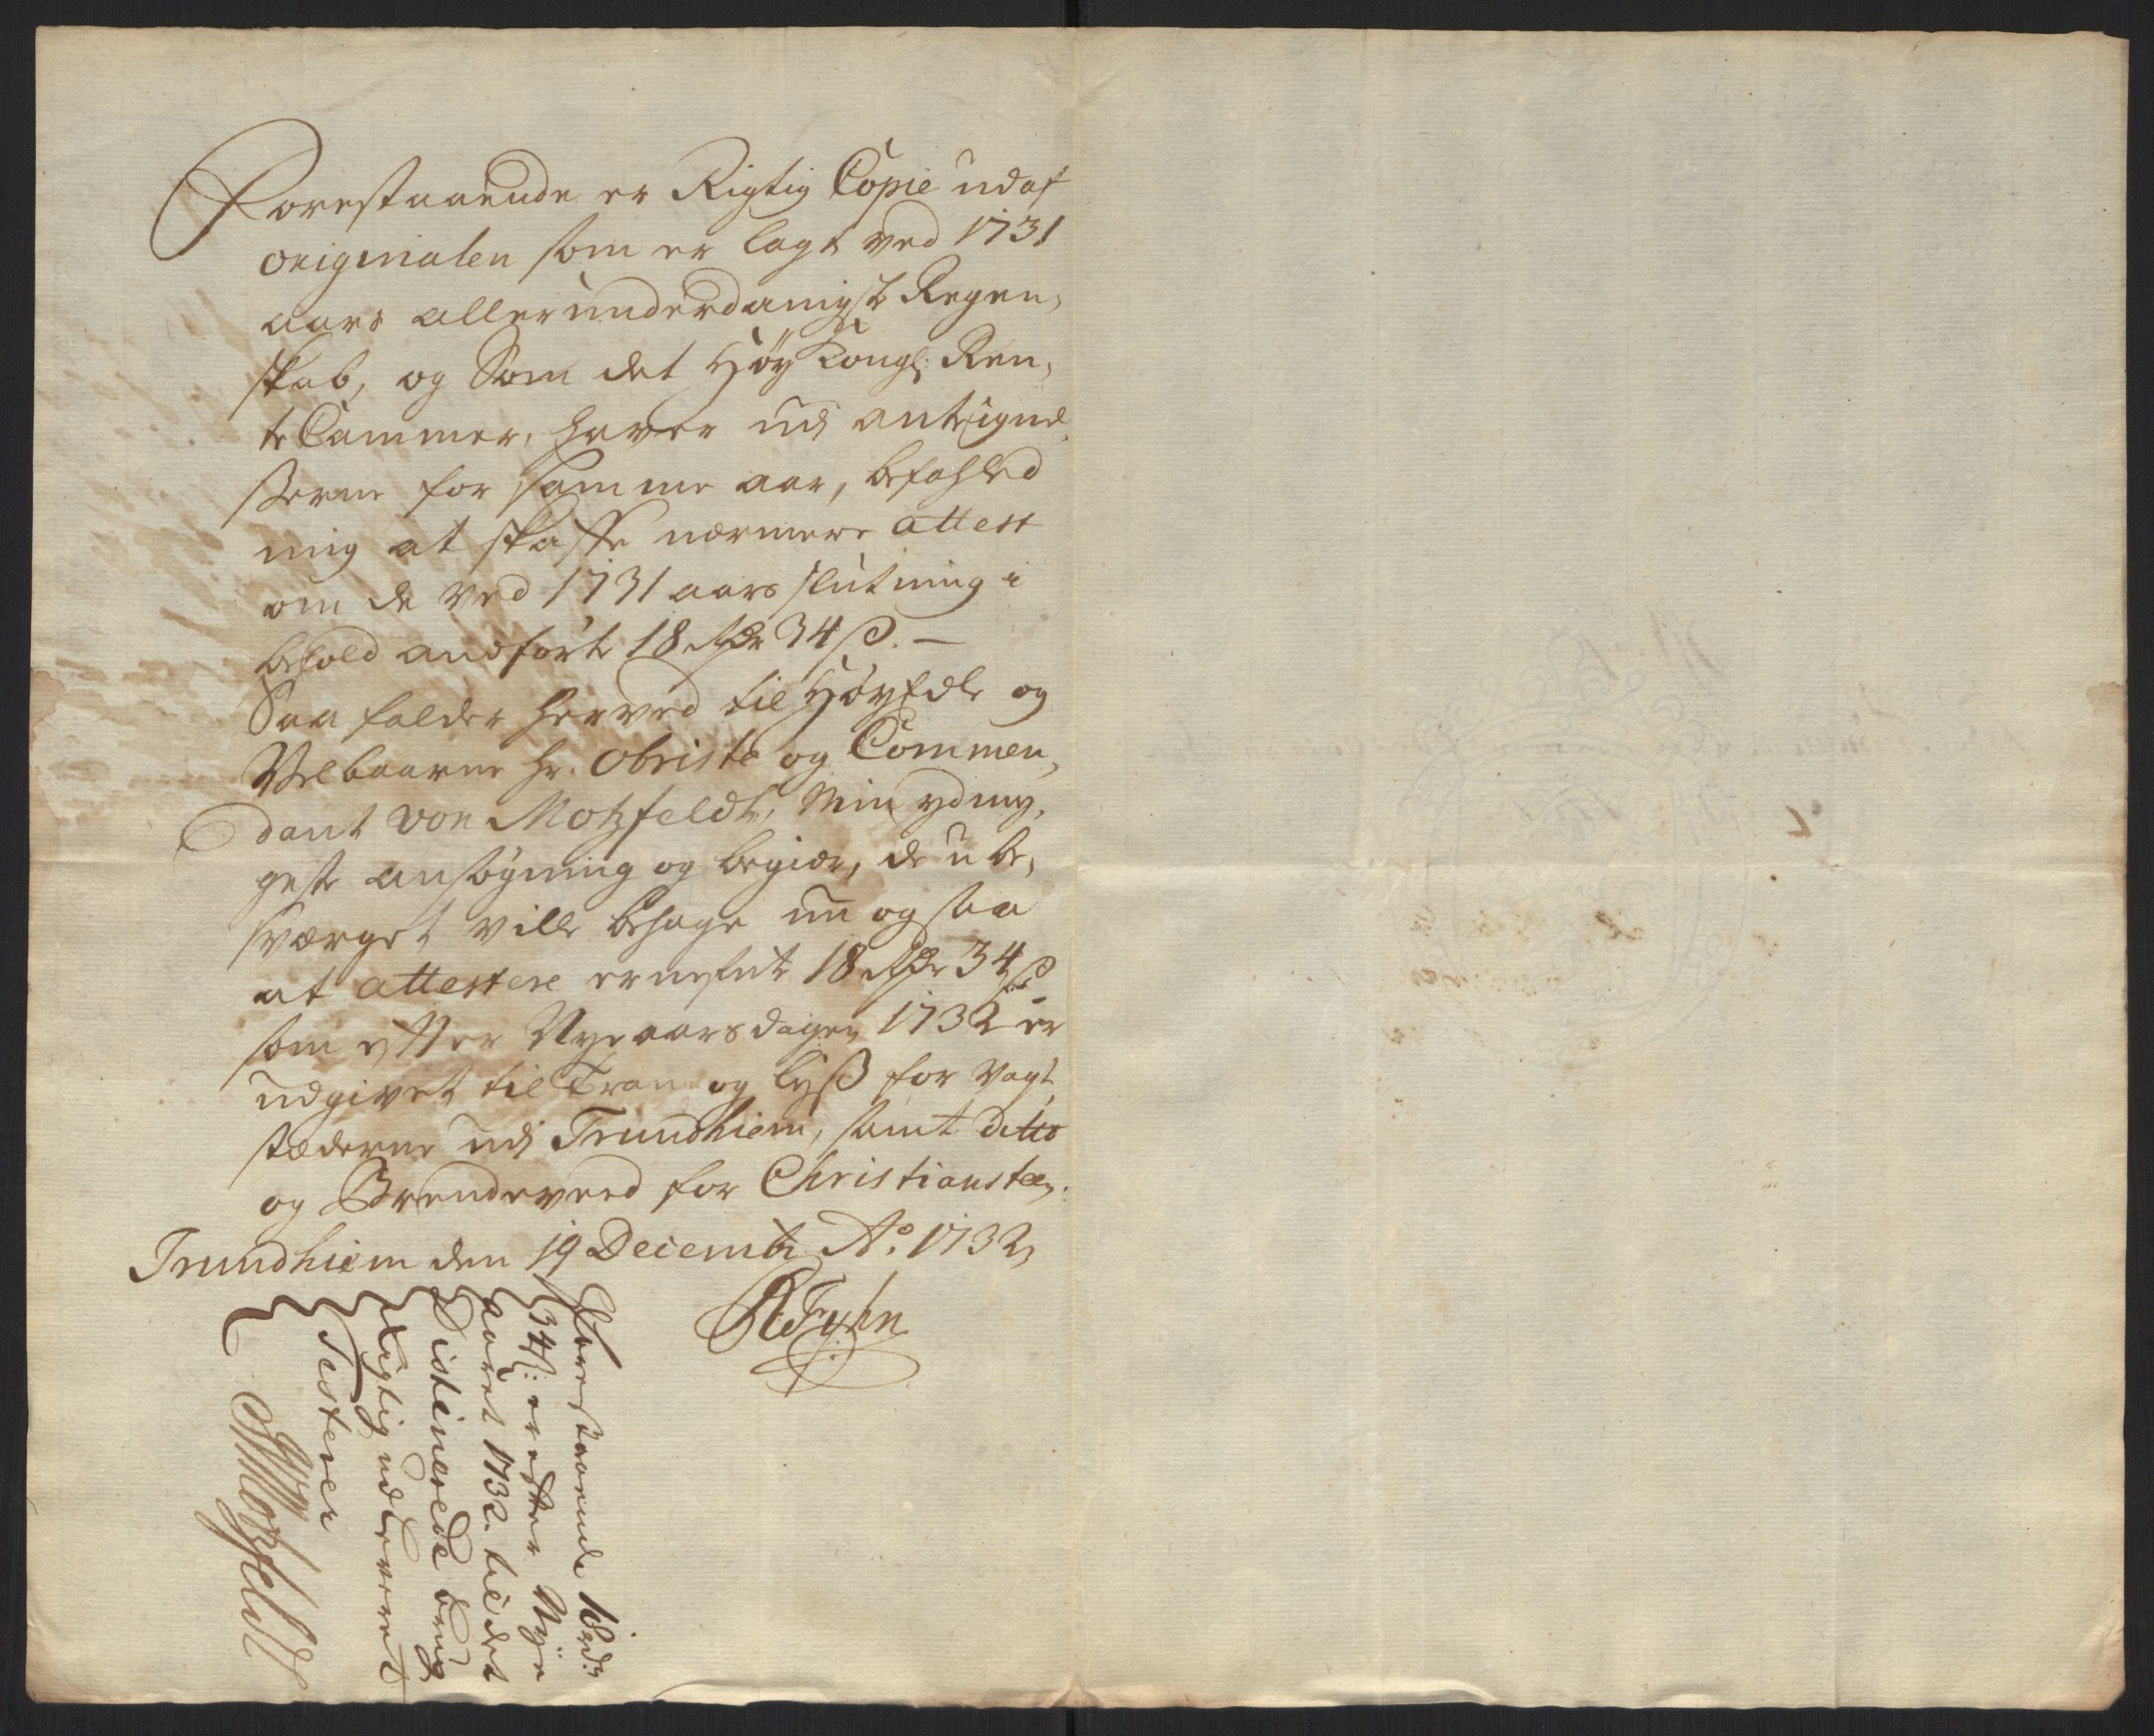 Forestaaende er Rigtig Copie udaf
originalen som er lagt ved 1731
aars allerunderdanigste Regen,
skab, og Som det Høy Kongl: Ren,
te Cammer, haver udj antegnel,
serne for samme aar, befahled
mig at skaffe nærmere attest
om de ved 1731 aars slutning i
behold andførte 18 rdr 34 s. –
Saa falder herved til Høyædle og
Velbaarne hr. Obriste og Commen,
dant von Motzfeldt, Min ydmy,
geste ansøgning og begiær, de ube,
sværget ville behage nu og saa
at attestere ermelente 18 rdr 34 s
som efter Nyeaarsdagen 1732 er
udgivet til Tran og lyß for vagt,
stæderne udj Trundhiem, samt ditto
og Brendeveed for Christiansteen.
Trundhiem den 19 Decembr Ao. 1732,
R Tyhn
Forestaaende 18 rdr
34 s: er efter Nye
aaret 1732. til det
Distinerede brug
Rigtig udleveret
Testerer
Motzfeldt